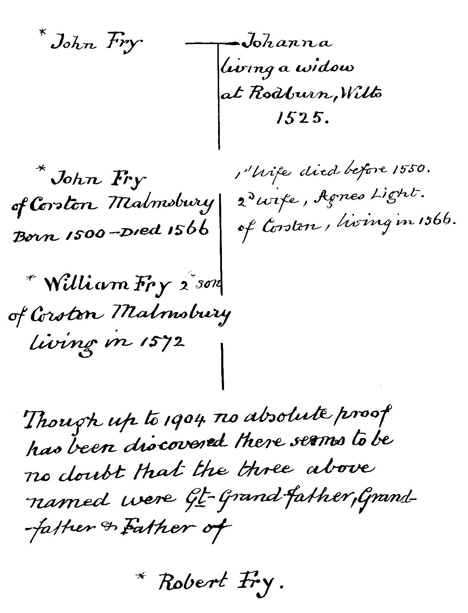 * John Fry — Johanna
living a widow
at Rodburn, Wilts
1525.
* John Fry
of Corston Malmsbury
Born 1500 – Died 1566
1st Wife died before 1550.
2d wife, Agnes Light.
of Corston, living in 1566.
* William Fry 2d son
of Corston Malmsbury
living in 1572
Though up to 1904 no absolute proof
has been discovered there seems to be
no doubt that the three above
named were Gt-Grandfather, Grand-
-father & Father of
* Robert Fry.